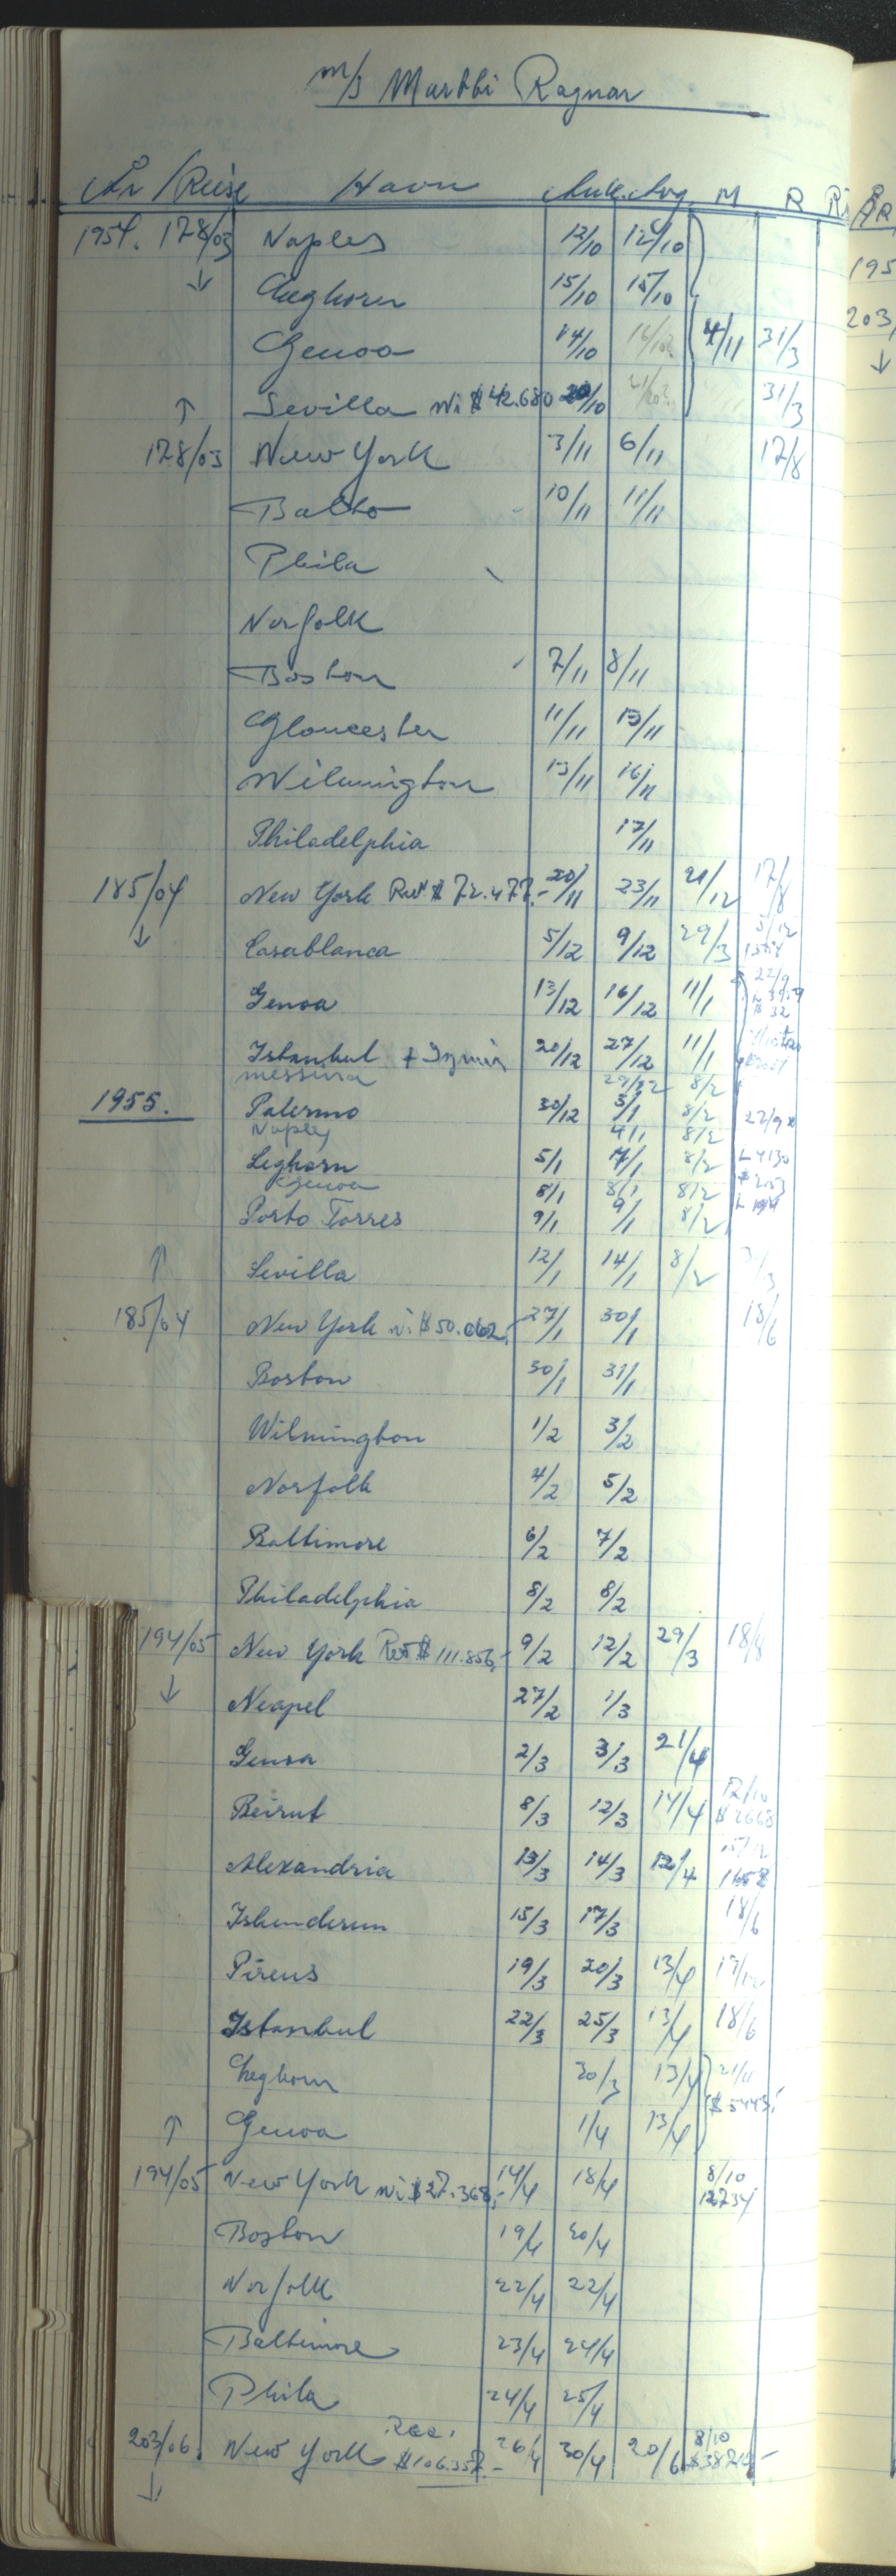 m/s Marthi Ragnar
År / Reise Havn Ank. Avg. M R
1954. 178/03 Naples 12/10 12/10
↓ Leghorn 15/10 15/10
Genoa 14/10 16/10? 4/11 31/3
↑ Sevilla Ni $ 42.680 20/10 21/10? 31/3
178/03 New York 3/11 6/11 17/8
Balto 10/11 11/11
Phila
Norfolk
Boston 7/11 8/11
Gloucester 11/11 13/11
Wilmington 13/11 16/11
Philadelphia 17/11
185/04 New York Rev $ 72.477.- 20/11 23/11 21/12 17/8
↓ Casablanca 5/12 9/12 29/3
Genoa 13/12 16/12 11/1 22/9
Istanbul + Izmir 20/12 27/12 11/1
Messina 29/12 8/2
1955. Palermo 30/12 3/1 8/2 22/9
Naples 4/1 8/2
Leghorn 5/1 7/1 8/2 L 4130
Genoa 8/1 8/1 8/2
Porto Torres 9/1 9/1 8/2
↑ Sevilla 12/1 14/1 8/2
185/04 New York Ni $ 50.062,- 27/1 30/1 18/6
Boston 30/1 31/1
Wilmington 1/2 3/2
Norfolk 4/2 5/2
Baltimore 6/2 7/2
Philadelphia 8/2 8/2
194/05 New York Rev $ 111.856,- 9/2 12/2 29/3 18/8
↓ Neapel 27/2 1/3
Genoa 2/3 3/3 21/4
Beirut 8/3 12/3 14/4 12/10
$ 2668
Alexandria 13/3 14/3 12/4 1658
Iskenderun 15/3 17/3 18/6
Pireus 19/3 20/3 13/4 17/12
Istanbul 22/3 25/3 13/4 18/6
Leghorn 30/3 13/4 21/11
$ 5443,-
↑ Genoa 1/4 13/4
194/05 New York Ni $ 27.368,- 14/4 18/4 8/10
12734
Boston 19/4 20/4
Norfolk 22/4 22/4
Baltimore 23/4 24/4
Phila 24/4 25/4
203/06. New York Rev. $ 106.357.- 26/4 30/4 20/6 8/10
↓
ÅR
195
203
↓